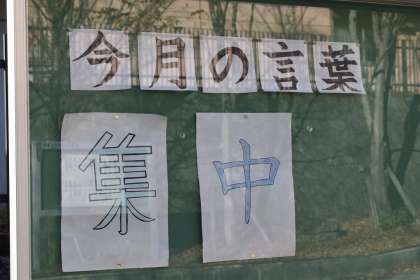 今月の言葉
集中